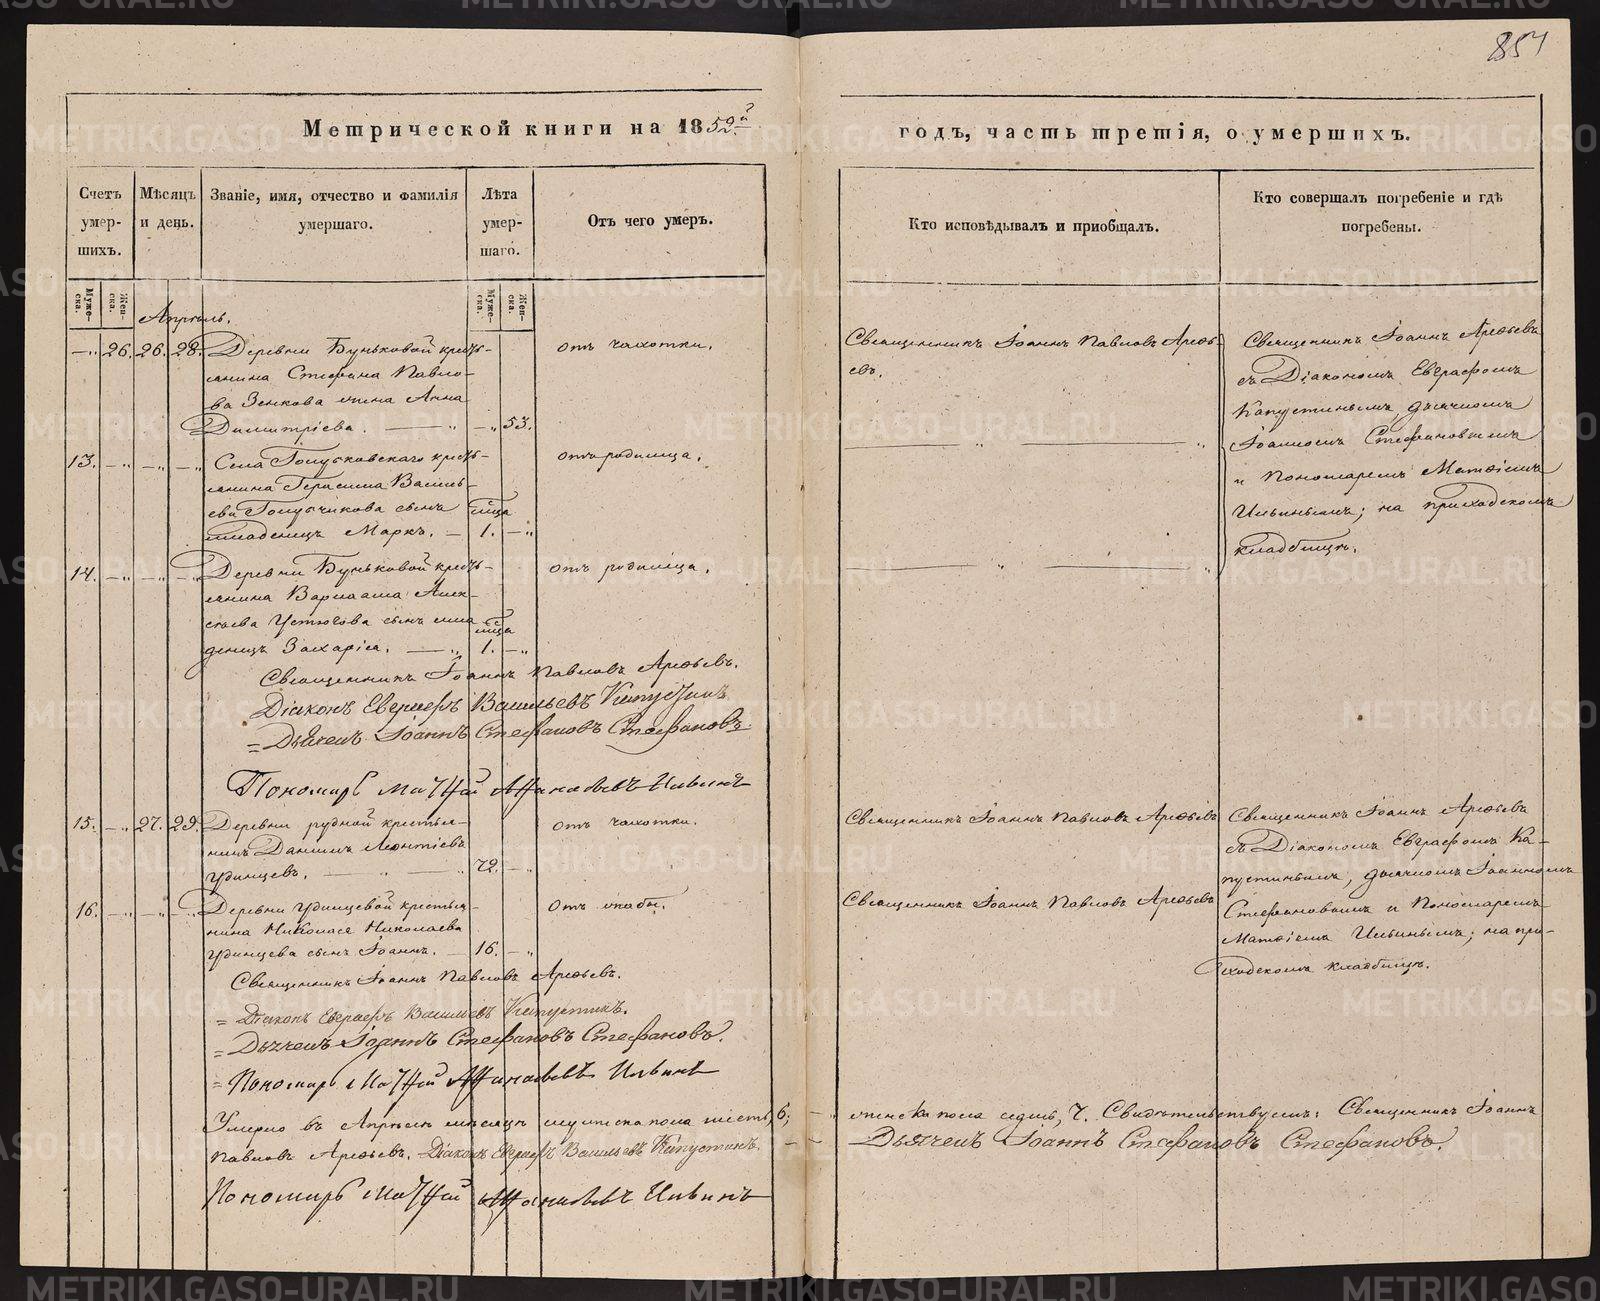 857
Метрической книги на 1852й
годъ, часть третія, о умершихъ.
Счетъ умер-шихъ.
Мѣсяцъ и день.
Званіе, имя, отчество и фамилія умершаго.
Лѣта умер-шаго.
Отъ чего умеръ.
Кто исповѣдывалъ и пріобщалъ.
Кто совершалъ погребеніе и гдѣ погребены.
Муже-ска.
Жен-ска.
Муже-ска.
Жен-ска.
Апрѣль.
26. 26. 28. Деревни Буньковой кресть-
янина Стефана Павло-
ва Зенкова жена Анна
Димитріева. 53.
отъ чахотки.
Священникъ Іоаннъ Павловъ Арефь-
евъ.
Священникъ Іоаннъ Арефьевъ
съ Діакономъ Евграфомъ
Капустинымъ, дьячкомъ
Іоанномъ Стефановымъ
и Пономаремъ Матѳіемъ
Ильинымъ; на приходскомъ
кладбищѣ.
13. Села Голубковскаго кресть-
янина Герасима Василь-
ева Голубчикова сынъ
младенецъ Маркъ. 1.
отъ родимца.
14. Деревни Буньковой кресть-
янина Варлаама Алек-
сѣева Устюгова сынъ мла
денецъ Захарія. 1.
отъ родимца.
Священникъ Іоаннъ Павловъ Арефьевъ.
Діаконъ Евграфъ Васильевъ Капустинъ
Дьячекъ Іоаннъ Стефановъ Стефановъ.
Пономарь Матѳій Аѳанасьевъ Ильинъ
15. 27. 29. Деревни рудной крестья-
нинъ Даніилъ Леонтіевъ
Удинцевъ. 72.
отъ чахотки.
Священникъ Іоаннъ Павловъ Арефьевъ
Священникъ Іоаннъ Арефьевъ
съ Діакономъ Евграфомъ Ка-
пустинымъ, дьячкомъ Іоанномъ
Стефановымъ и Пономаремъ
Матѳіемъ Ильинымъ; на при-
ходскомъ кладбищѣ.
16. Деревни Удинцевой крестья-
нина Николая Николаева
Удинцева сынъ Іоаннъ. 16.
Отъ жабы.
Священникъ Іоаннъ Павловъ Арефьевъ
Священникъ Іоаннъ Павловъ Арефьевъ.
Діаконъ Евграфъ Васильевъ Капустинъ.
Дьячекъ Іоаннъ Стефановъ Стефановъ.
Пономарь Матѳій Аѳанасьевъ Ильинъ
Умерло въ Апрѣлѣ мѣсяцѣ мужеска пола шесть, 6; женска пола седмь, 7. Свидѣтельствуемъ: Священникъ Іоаннъ
Павловъ Арефьевъ. Діаконъ Евграфъ Васильевъ Капустинъ. Дьячекъ Іоаннъ Стефановъ Стефановъ.
Пономарь Матѳій Аѳанасьевъ Ильинъ
METRIKI.GASO-URAL.RU